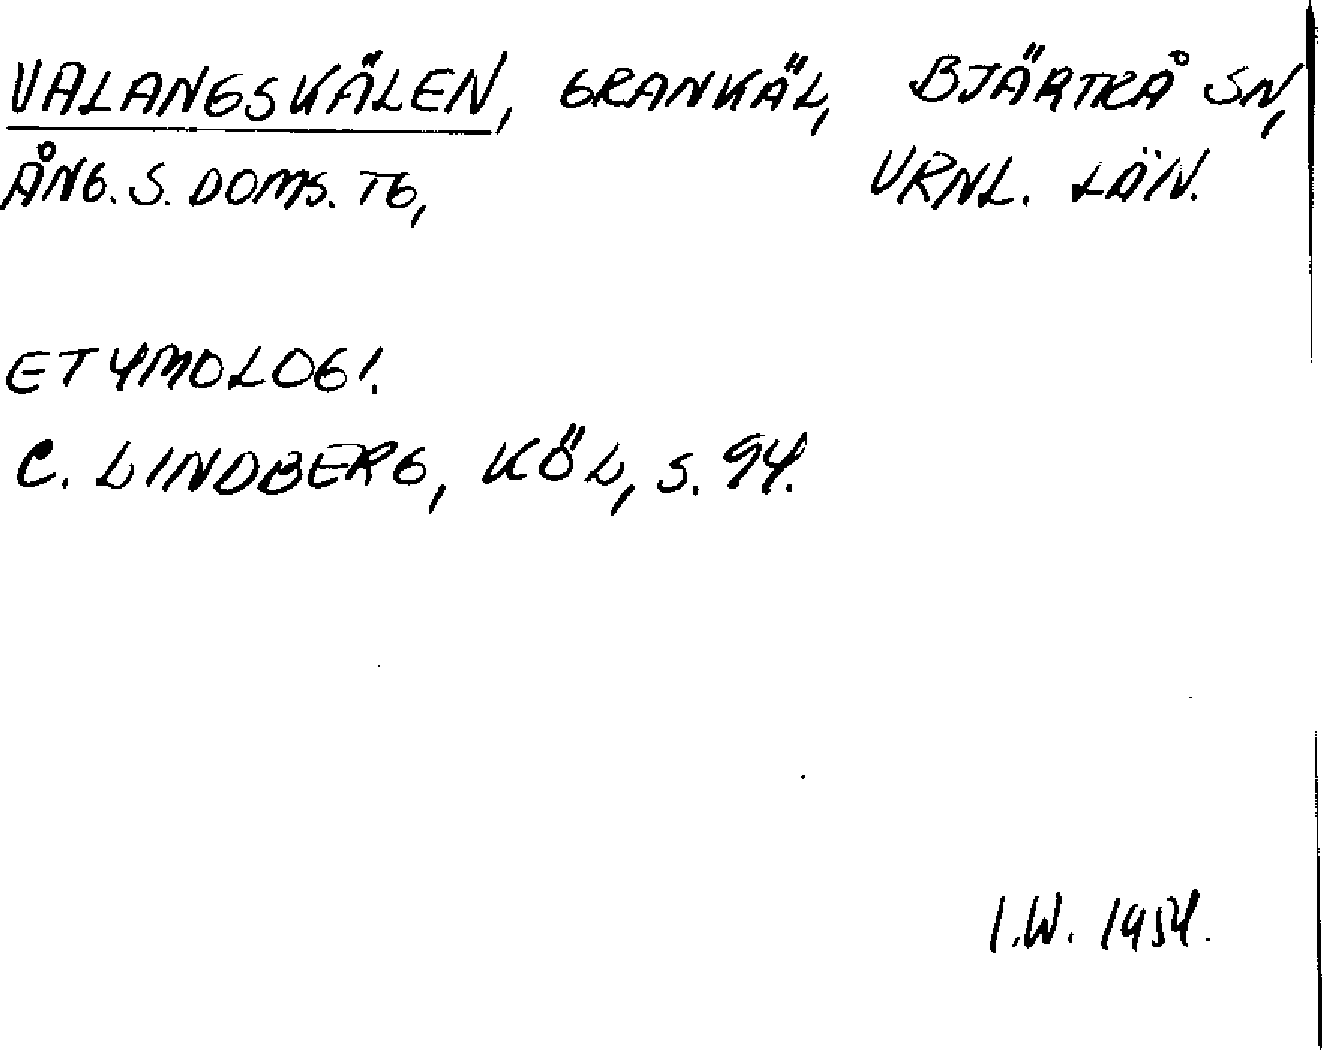 VALANGSKÄLEN, GRANKÄL, BJÄRTRÅ SN,
ÅNG. S. DOMS. TG, VRNL. LÄN.
ETYMOLOGI.
C. LINDBERG, KÖL, S. 94.
I.W. 1954.